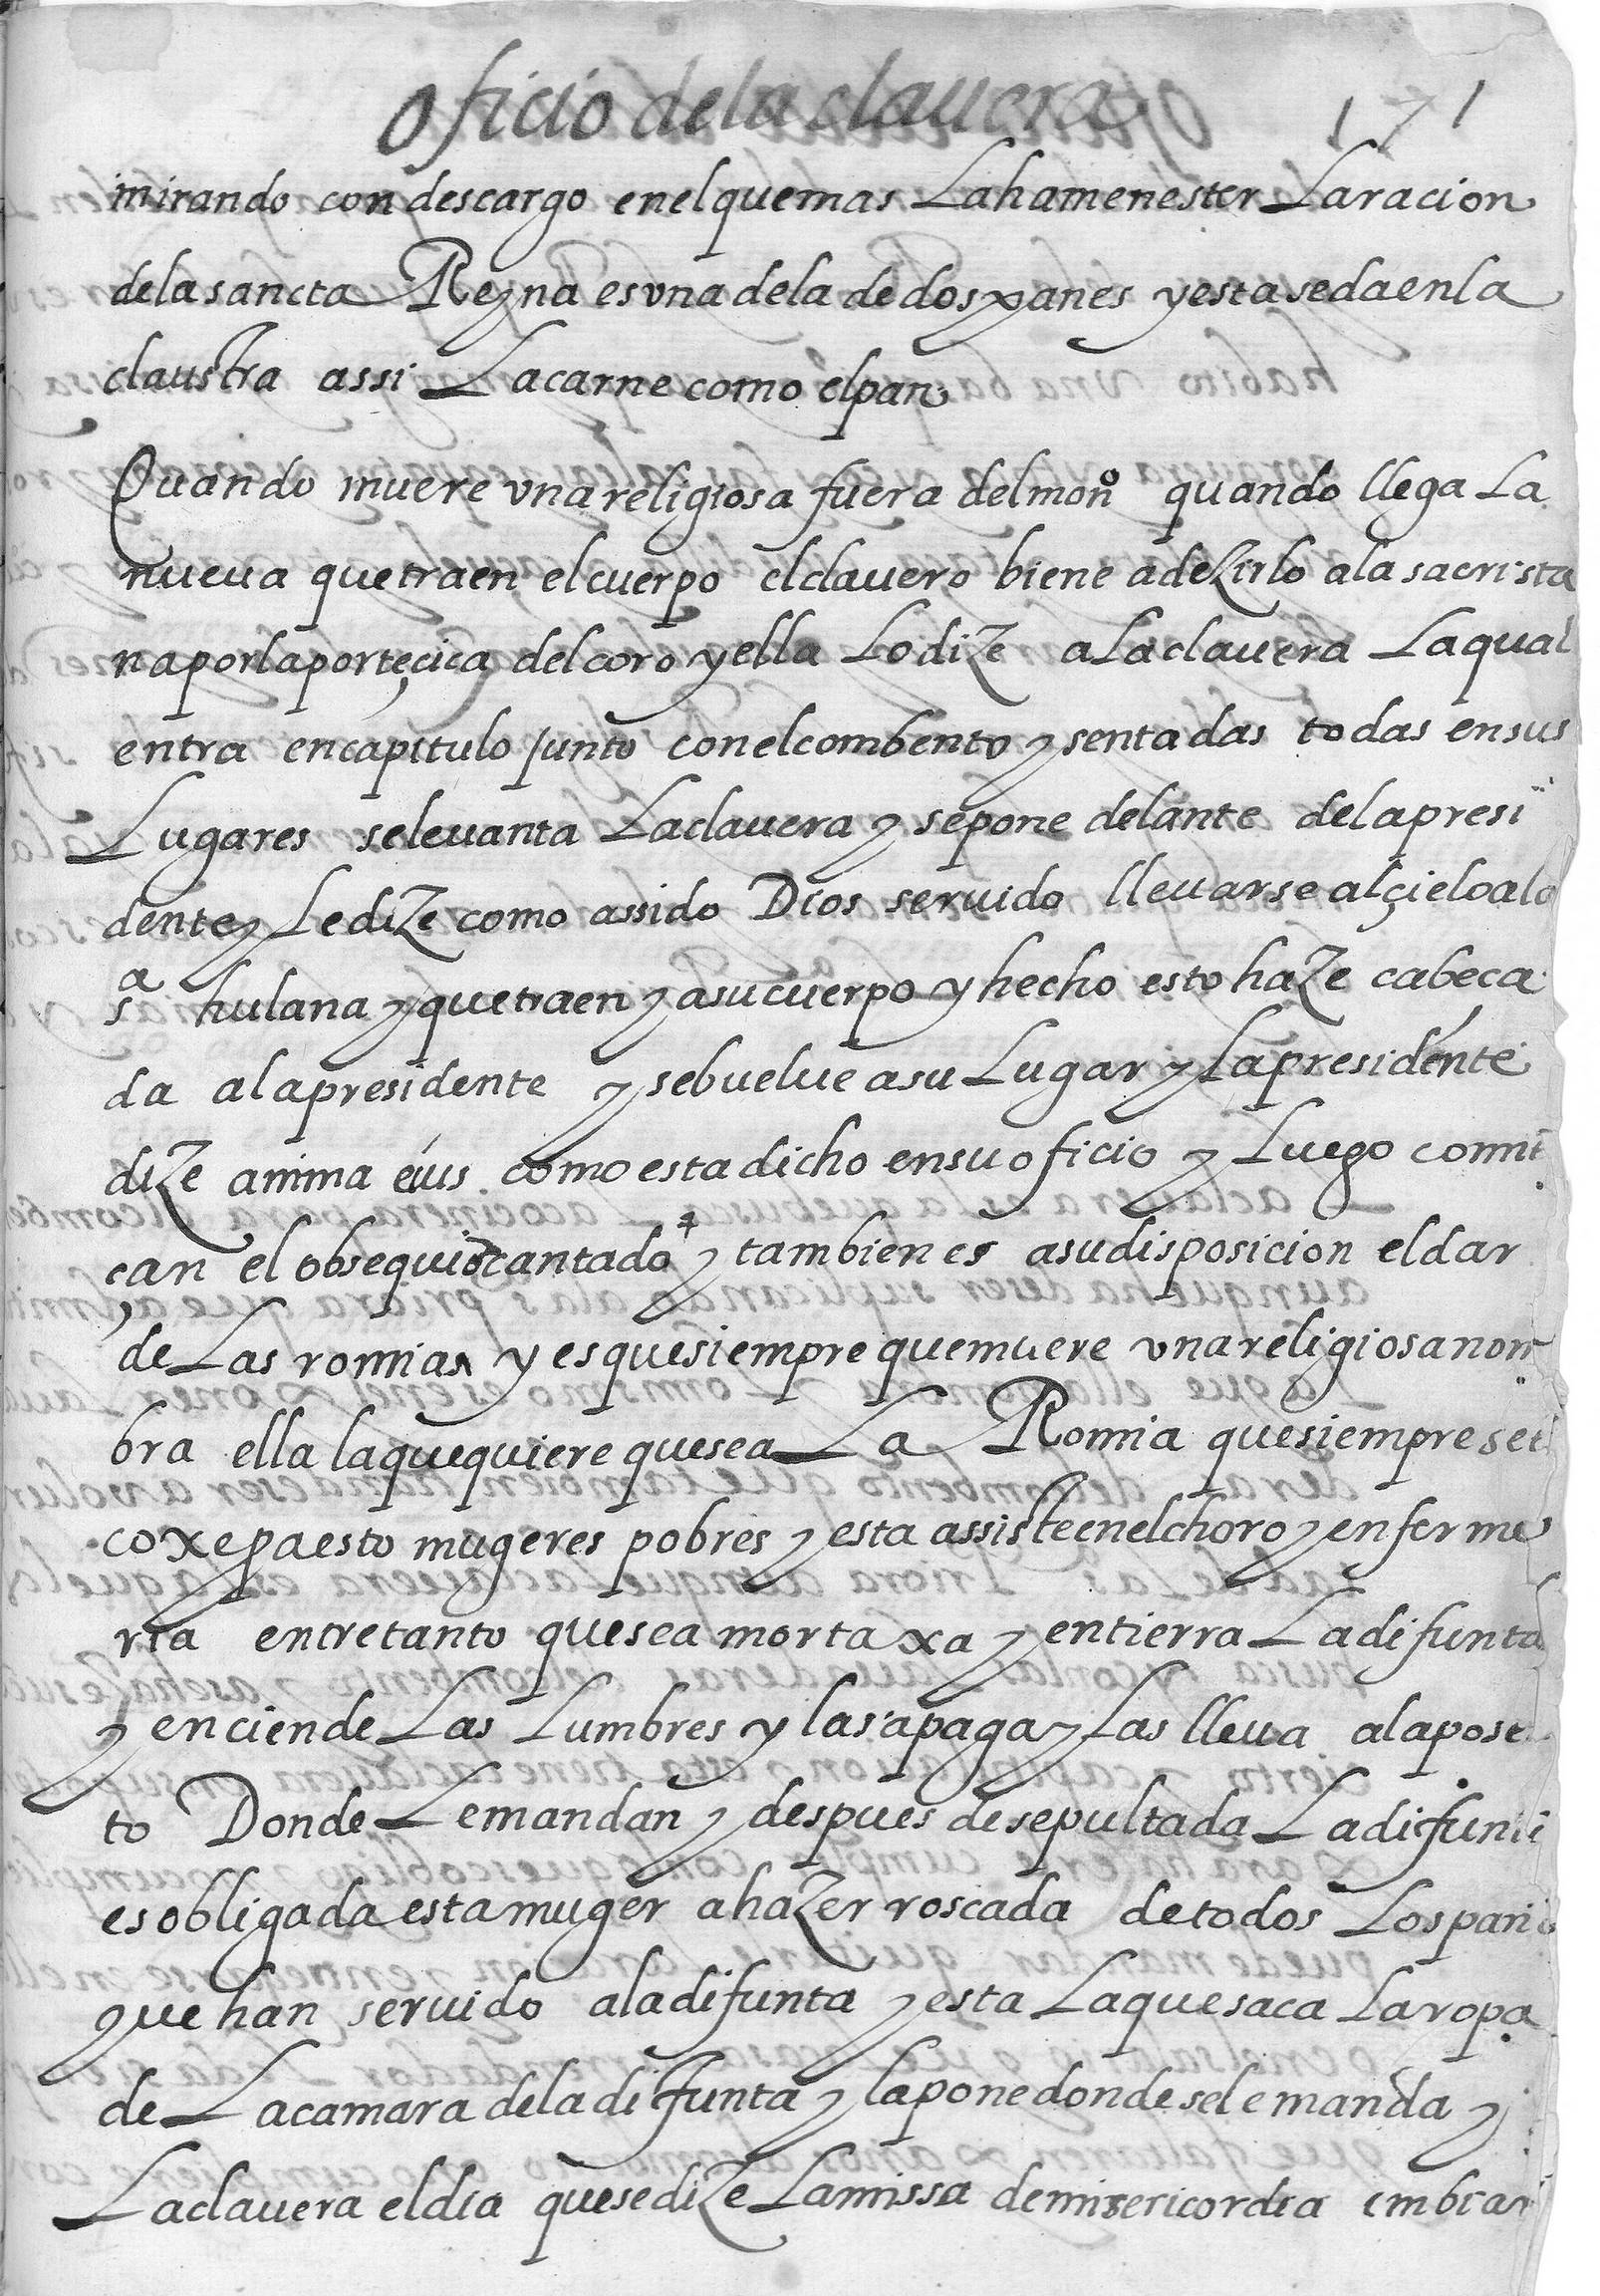 oficio de la clauera 171
mirando con descargo en el que mas La ha menester La racion
de la sancta Reyna es vna de la de dos panes y esta se da en la
claustra assi La carne como el pan
Quando muere vna religiosa fuera del monº quando llega La
nueua que traen el cuerpo el clauero biene a deZirlo a la sacrista
na por la porteçica del coro y ella Lo diZe a La clauera La qual
entra en capitulo junto con el combento y sentadas todas en sus
Lugares se leuanta La clauera y se pone delante de la presi
dente y Le diZe como assido Dios seruido lleuarse al çielo a la
sª hulana y que traen ya su cuerpo y hecho esto haZe cabeca
da a la presidente y se buelue a su Lugar y La presidente
diZe anima eius como esta dicho en su oficio y Luego comi
çan el obsequio cantado y tambien es a su disposicion el dar
de Las romias y es que siempre que muere vna religiosa nom
bra ella la que quiere que sea La Romia que siempre se
coxe pa esto mugeres pobres y esta assiste en el choro y enferme
ria entre tanto que se amortaxa y entierra La difunta
y enciende Las Lumbres y las apaga y Las lleua al apose
to Donde Le mandan y despues de sepultada La difun
es obligada esta muger a haZer roscada de todos Los pan
que han seruido a la difunta y esta La que saca La ropa
de La camara de la difunta y la pone donde se le manda y
La clauera el dia que se diZe La missa de misericordia imbiar